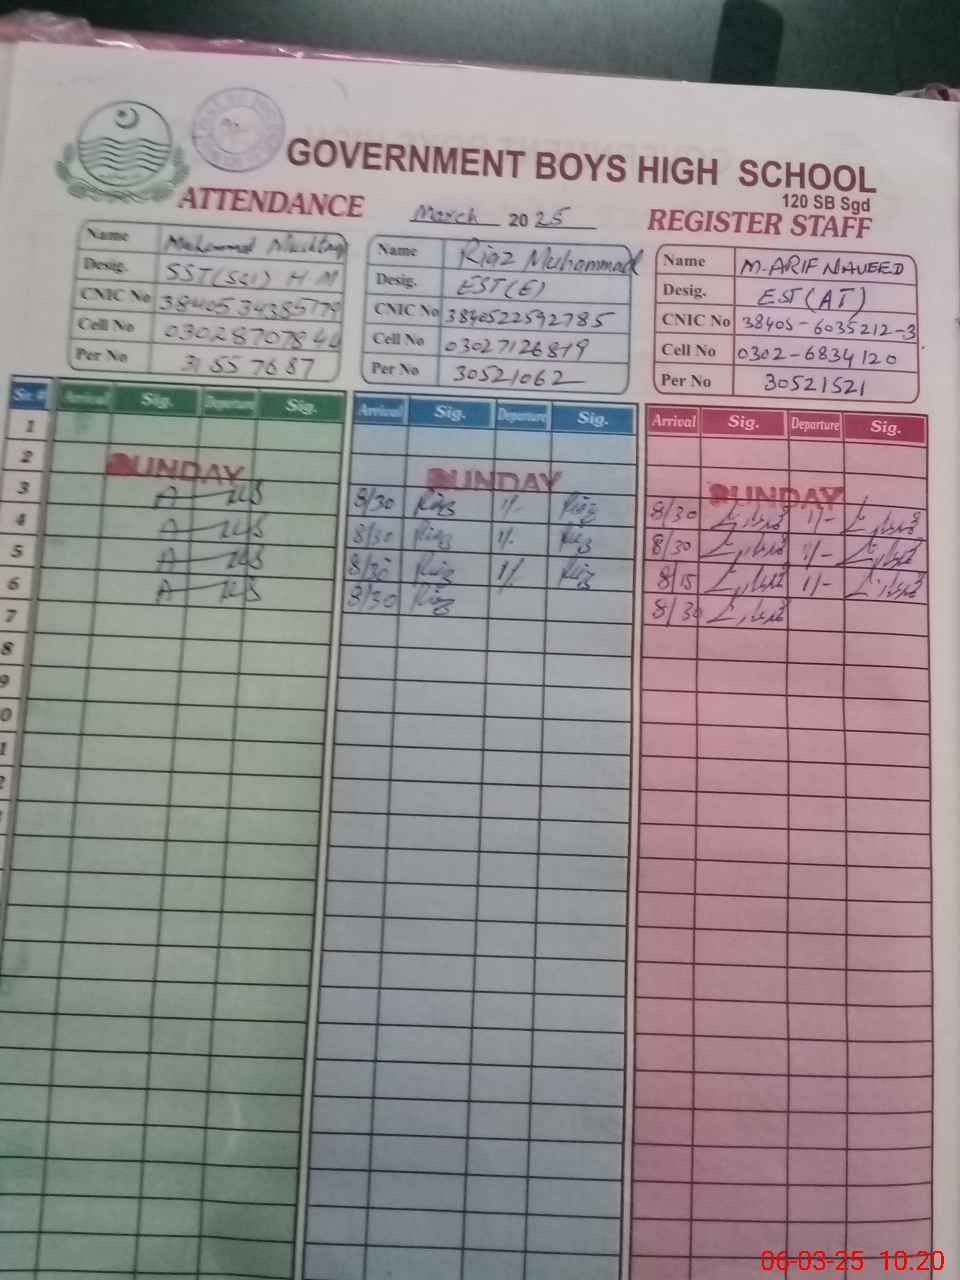 GOVERNMENT BOYS HIGH SCHOOL
120 SB Sgd
ATTENDANCE March 2025 REGISTER STAFF
Name Muhammad Mushtaq
Desig. SST(Sci) H.M
CNIC No 3840534385779
Cell No 03028707844
Per No 31557687
Name Riaz Muhammad
Desig. EST(E)
CNIC No 3840522592785
Cell No 03027126819
Per No 30521062
Name M.ARIF NAVEED
Desig. EST(AT)
CNIC No 38405-6035212-3
Cell No 0302-6834120
Per No 30521521
Sr. # Arrival Sig. Departure Sig. Arrival Sig. Departure Sig. Arrival Sig. Departure Sig.
1
2 SUNDAY SUNDAY SUNDAY
3 A 8/30 Riaz 1/- Riaz 8/30 1/-
4 A 8/30 Riaz 1/- Riaz 8/30 1/-
5 A 8/30 Riaz 1/- Riaz 8/15 1/-
6 A 8/30 Riaz 8/30
7
8
9
0
1
2
06-03-25 10:20